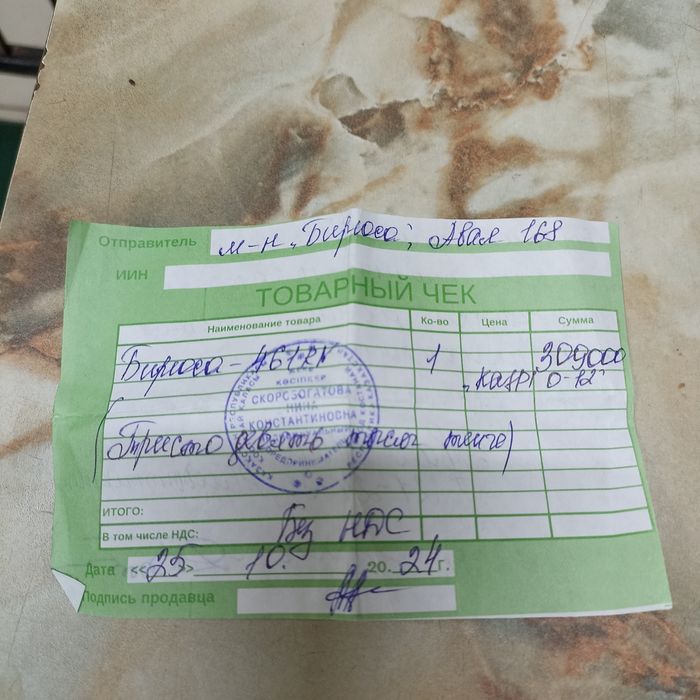 Отправитель м-н „Бирюса", Абая 168
ИИН
ТОВАРНЫЙ ЧЕК
Наименование товара Кол-во Цена Сумма
Бирюса- 1 309000
„Kaspi 0-12"
КӘСІПКЕР
СКОРОБОГАТОВА
НИНА
КОНСТАНТИНОВНА
(Триста девять тысяч тенге)
ИТОГО:
В том числе НДС: Без НДС
Дата «25» 10. 20.24г.
Подпись продавца